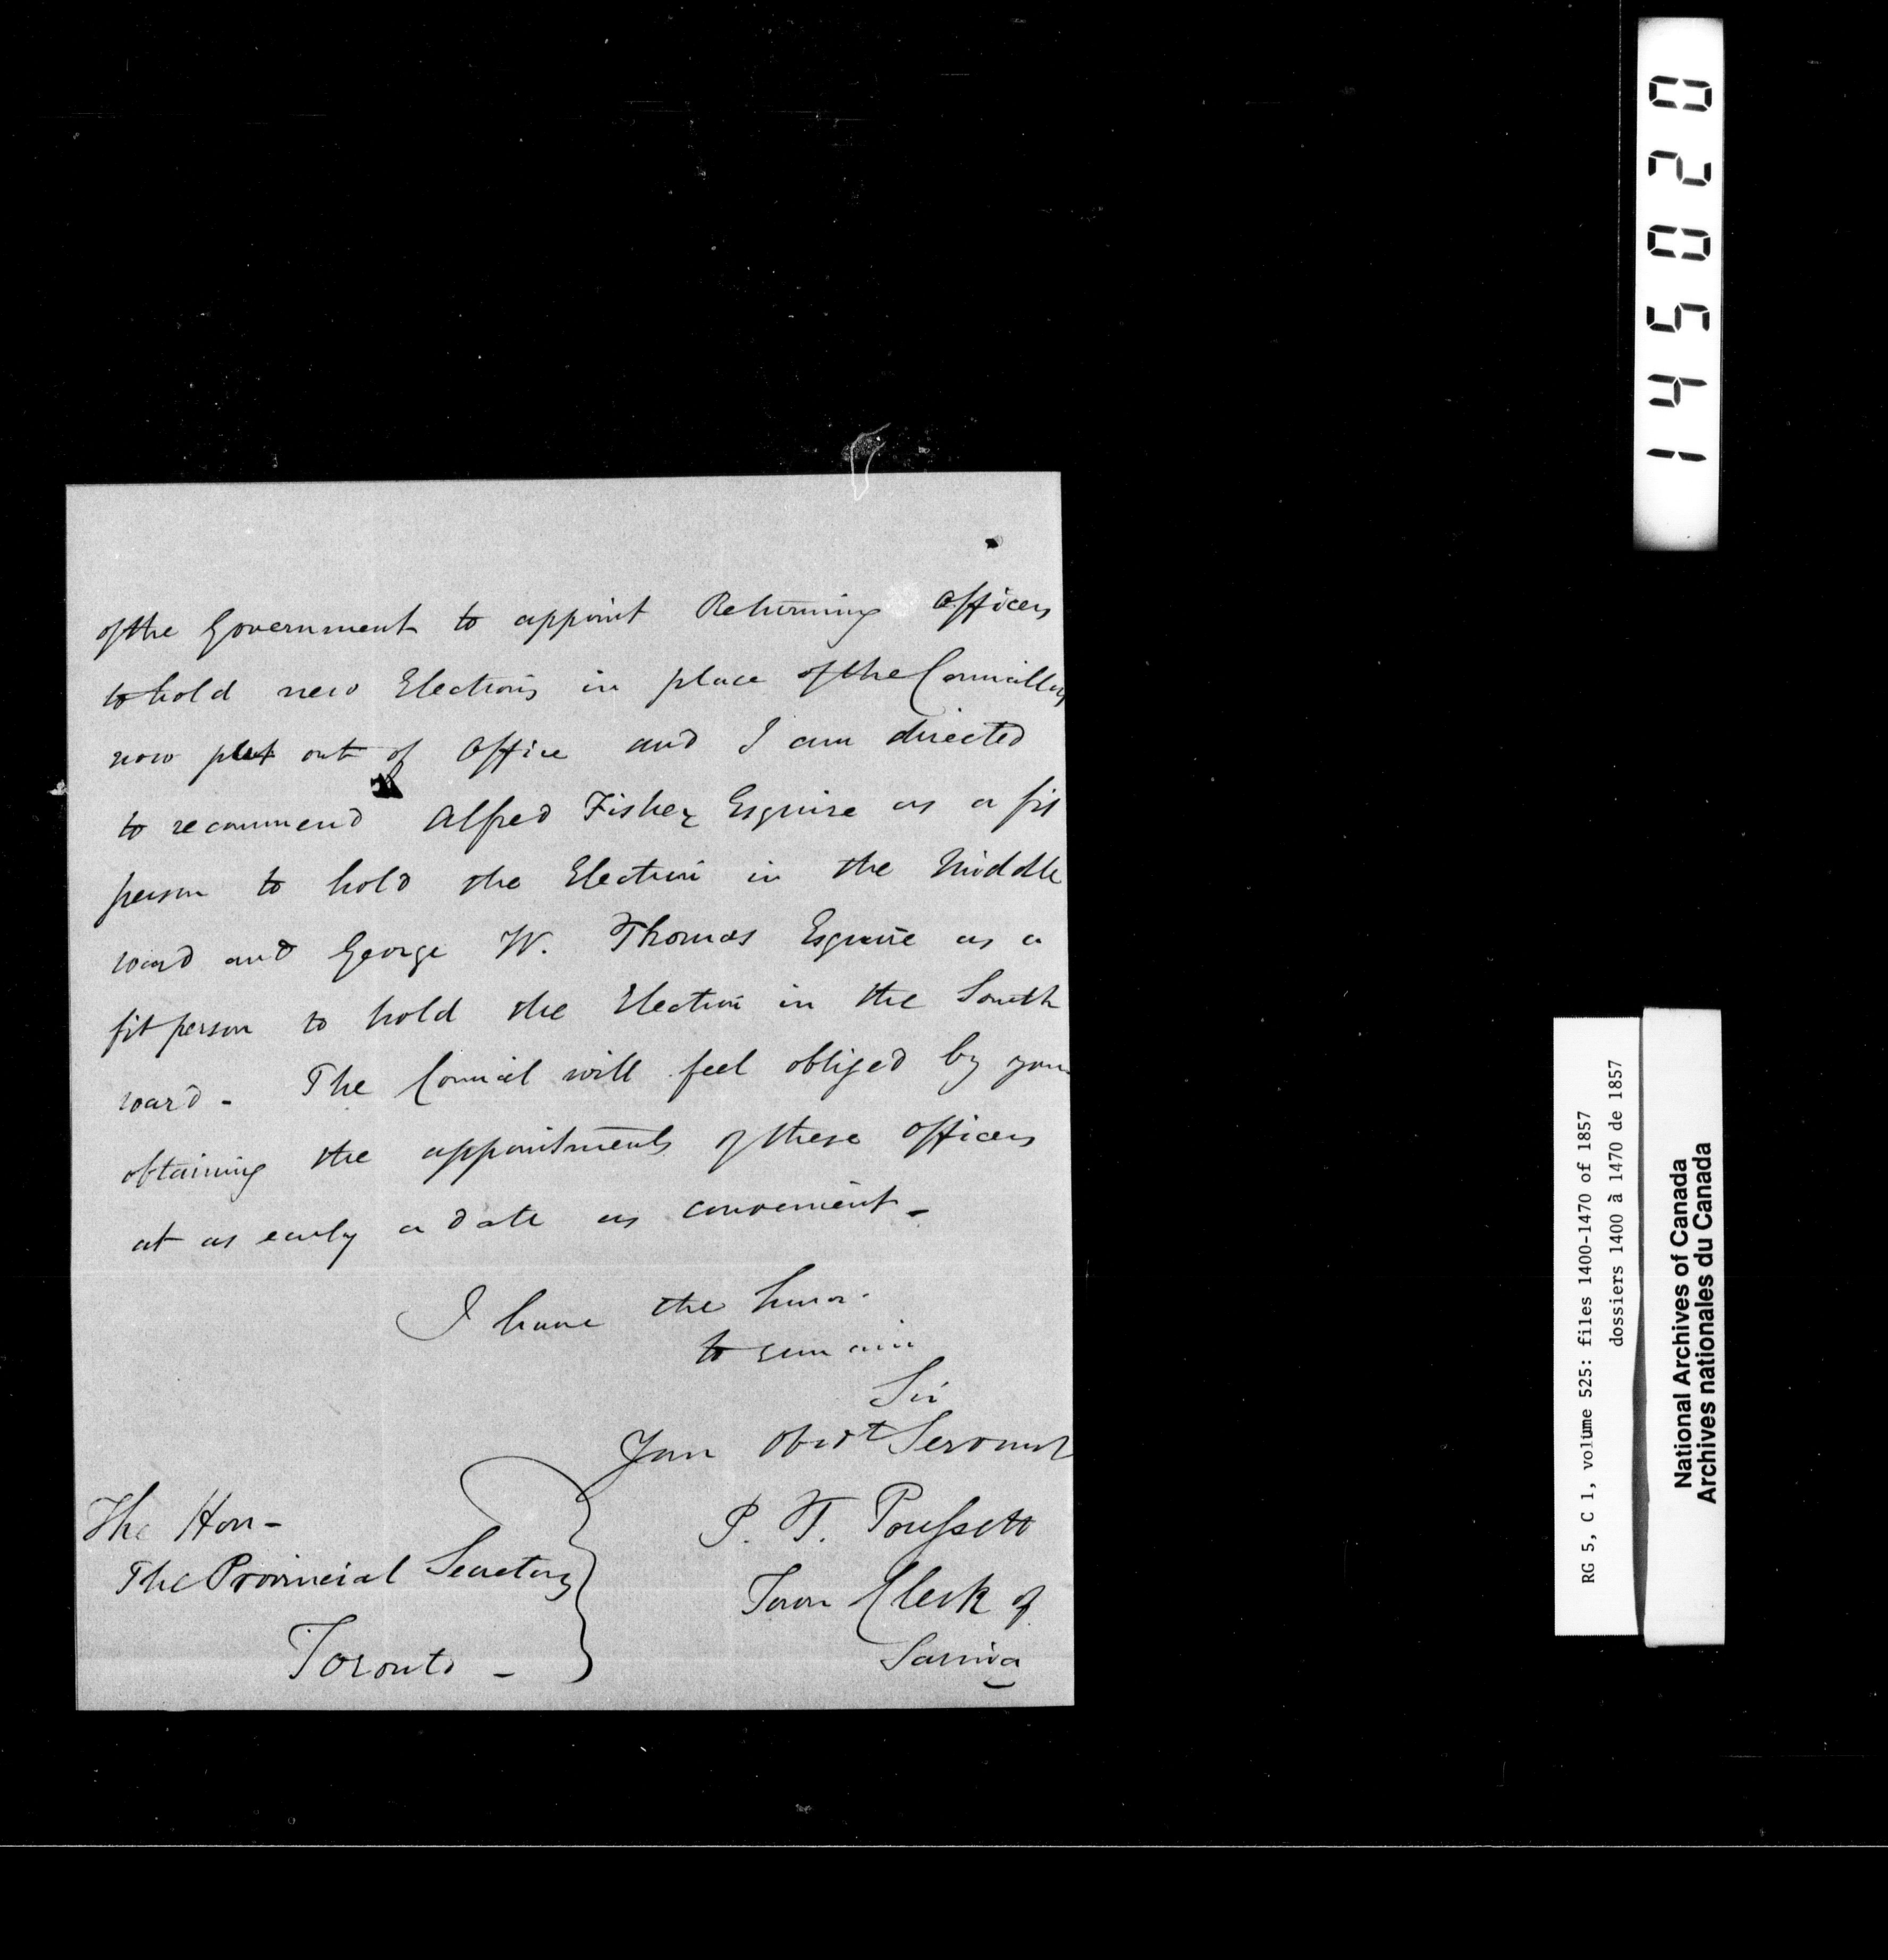 of the Government to appoint Returning Officers
to hold new Elections in place of the Councillors
now put out of Office and I am directed
to recommend Alfred Fisher Esquire as a fit
person to hold the Election in the Middle
ward and George W. Thomas Esquire as a
fit person to hold the Election in the South
ward - The Council will feel obliged by your
obtaining the appointments of these officers
at as early a date as convenient -
I have the honor
to remain
Sir
Your Obedt Servant
P. T. Poussett
Town Clerk of
Sarnia
The Hon -
The Provincial Secretary
Toronto -
145020
RG 5, C 1, volume 525: files 1400-1470 of 1857
dossiers 1400 à 1470 de 1857
National Archives of Canada
Archives nationales du Canada